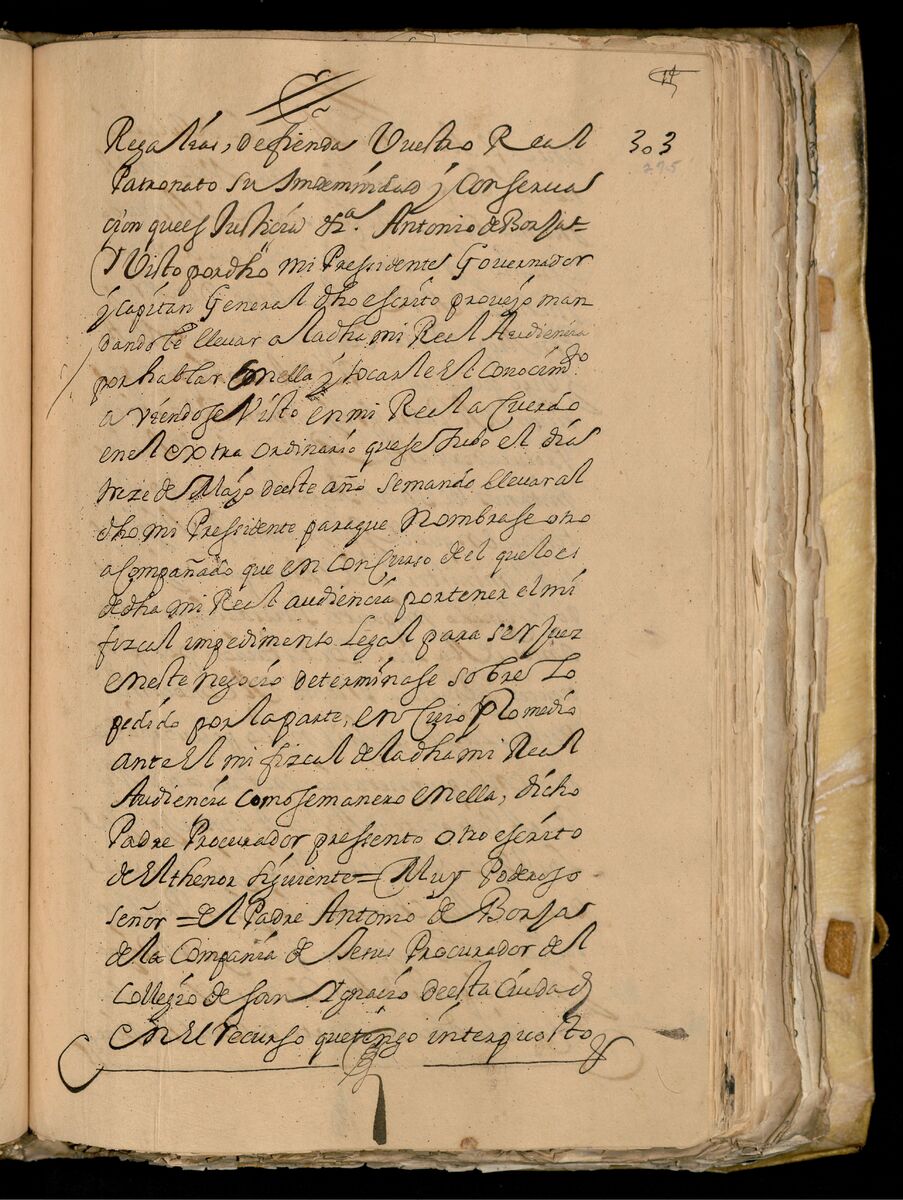 11
303
295
Regalias, defienda Vuestro Real
Patronato su Indemnidad y conserua
cion que es Justicia &.ª Antonio de Borjas =
Y Visto por dho mi Pressidente Governador
y capitan General dho escrito proveyo man
dandose llevar a la dha mi Real Audiencia
por hablar con ella y tocarle el conocim.to
a viendose Visto en mi Real a Cuerdo
en el extra ordinario que se tubo el dia
treze de Mayo deste año se mando llevar al
dho mi Pressidente para que Nombrase otro
a Compañado que en concurso de el que lo es
de dha mi Real audiencia por tener el mi
fizcal impedimento Legal para ser Juez
en este negocio determinase sobre lo
pedido por la parte, en Cuio medio
ante El mi fizcal de la dha mi Real
Audiencia como semanero en ella, dicho
Padre Procurador pressento otro escrito
de El thenor siguiente = Muy Poderoso
señor = el Padre Antonio de Borjas
de la Compañia de Jesus Procurador del
Collegio de san Ygnacio de esta Ciudad
en El recurso que tengo interpuesto